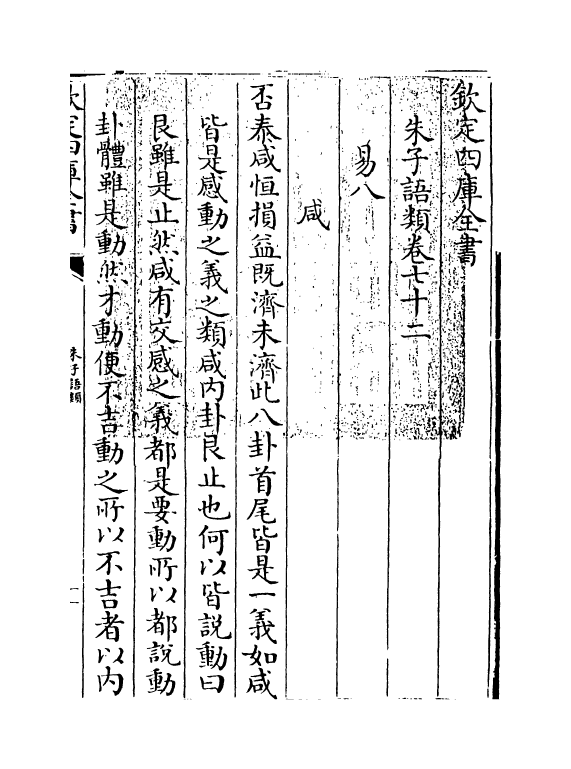 欽定四庫全書
朱子語類卷七十二
易八
咸
否泰咸恒損益既濟未濟此八卦首尾皆是一義如咸
皆是感動之義之類咸内卦艮止也何以皆說動曰
艮雖是止然咸有交感之義都是要動所以都說動
卦體雖是動然才動便不吉動之所以不吉者以内
欽定四庫全書
朱子語類
一